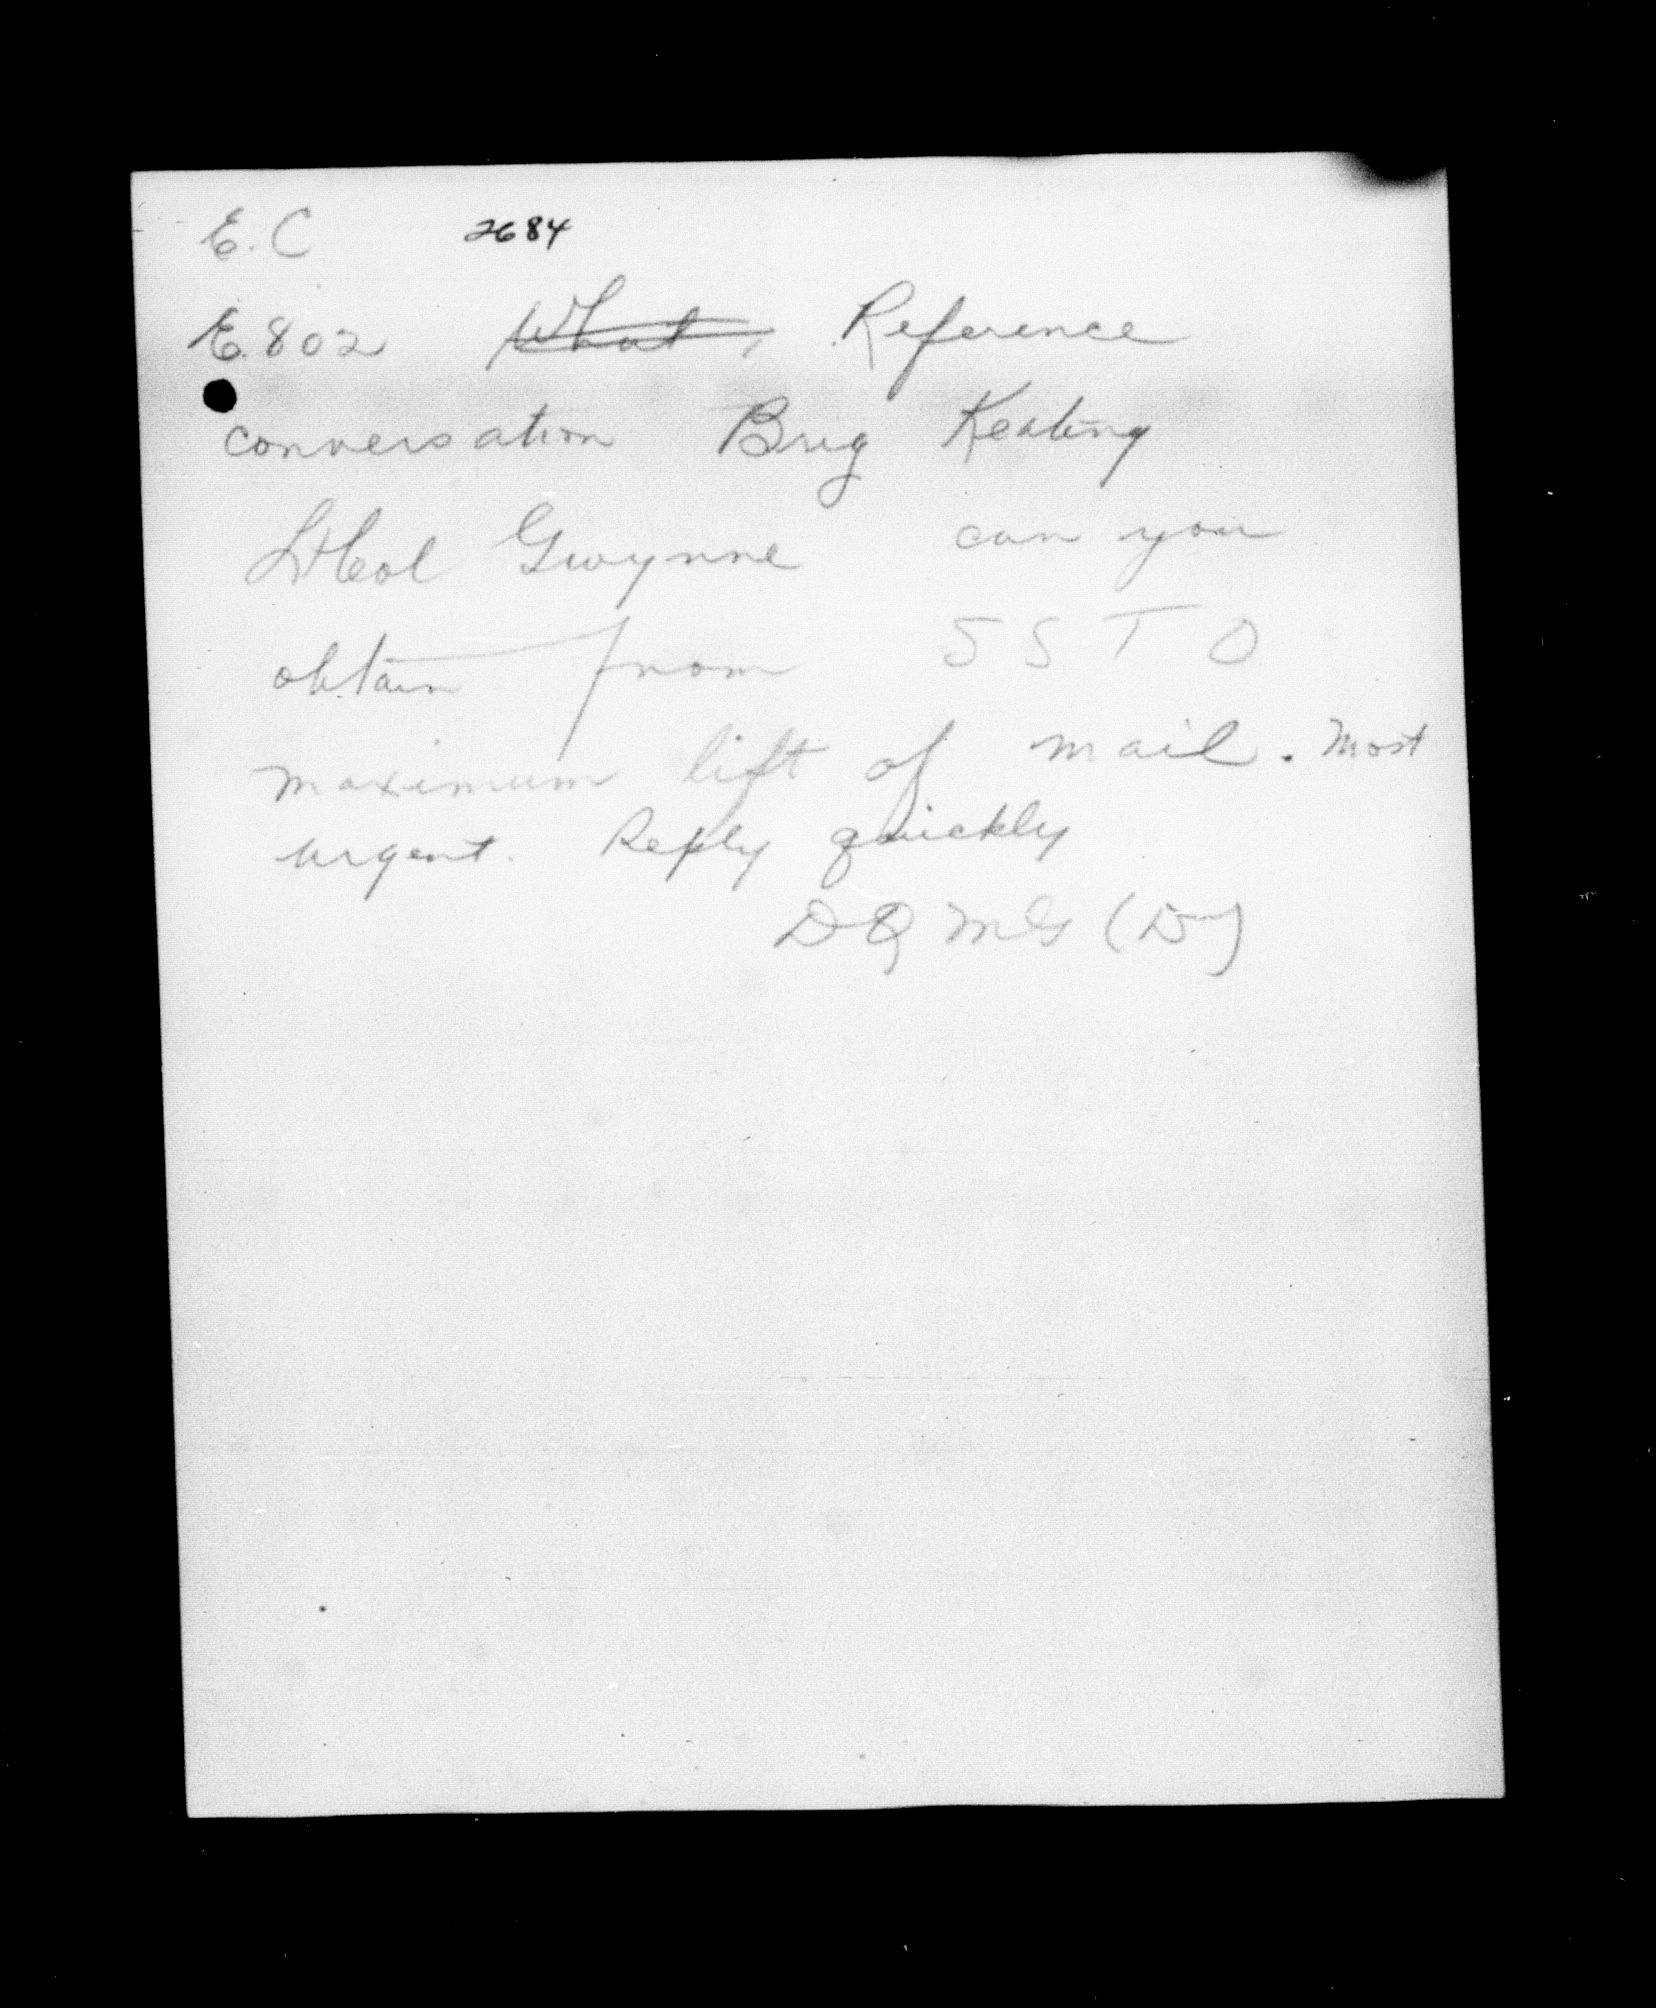 E.C 2684
E.802 What, Reference
conversation Brig Keating
Lt Col Gwynne can you
obtain from SSTO
maximum lift of mail. Most
urgent. Reply quickly
DQMG